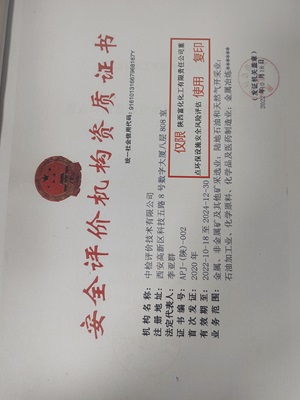 安全评价机构资质证书
统一社会信用代码：
仅限 陕西富化化工有限责任公司重
点环保设施安全风险评估 使用 复印
机构名称：中检评价技术有限公司
注册地址：西安高新区科技五路8号数字大厦八层808室
法定代表人：李亚群
证书编号：APJ-(陕)-002
首次发证：2020年
有效期至：2022-10-18 至 2024-12-30
业务范围：金属、非金属矿及其他矿采选业；陆地石油和天然气开采业；
石油加工业、化学原料、化学品及医药制造业；金属冶炼******
（发证机关盖章）